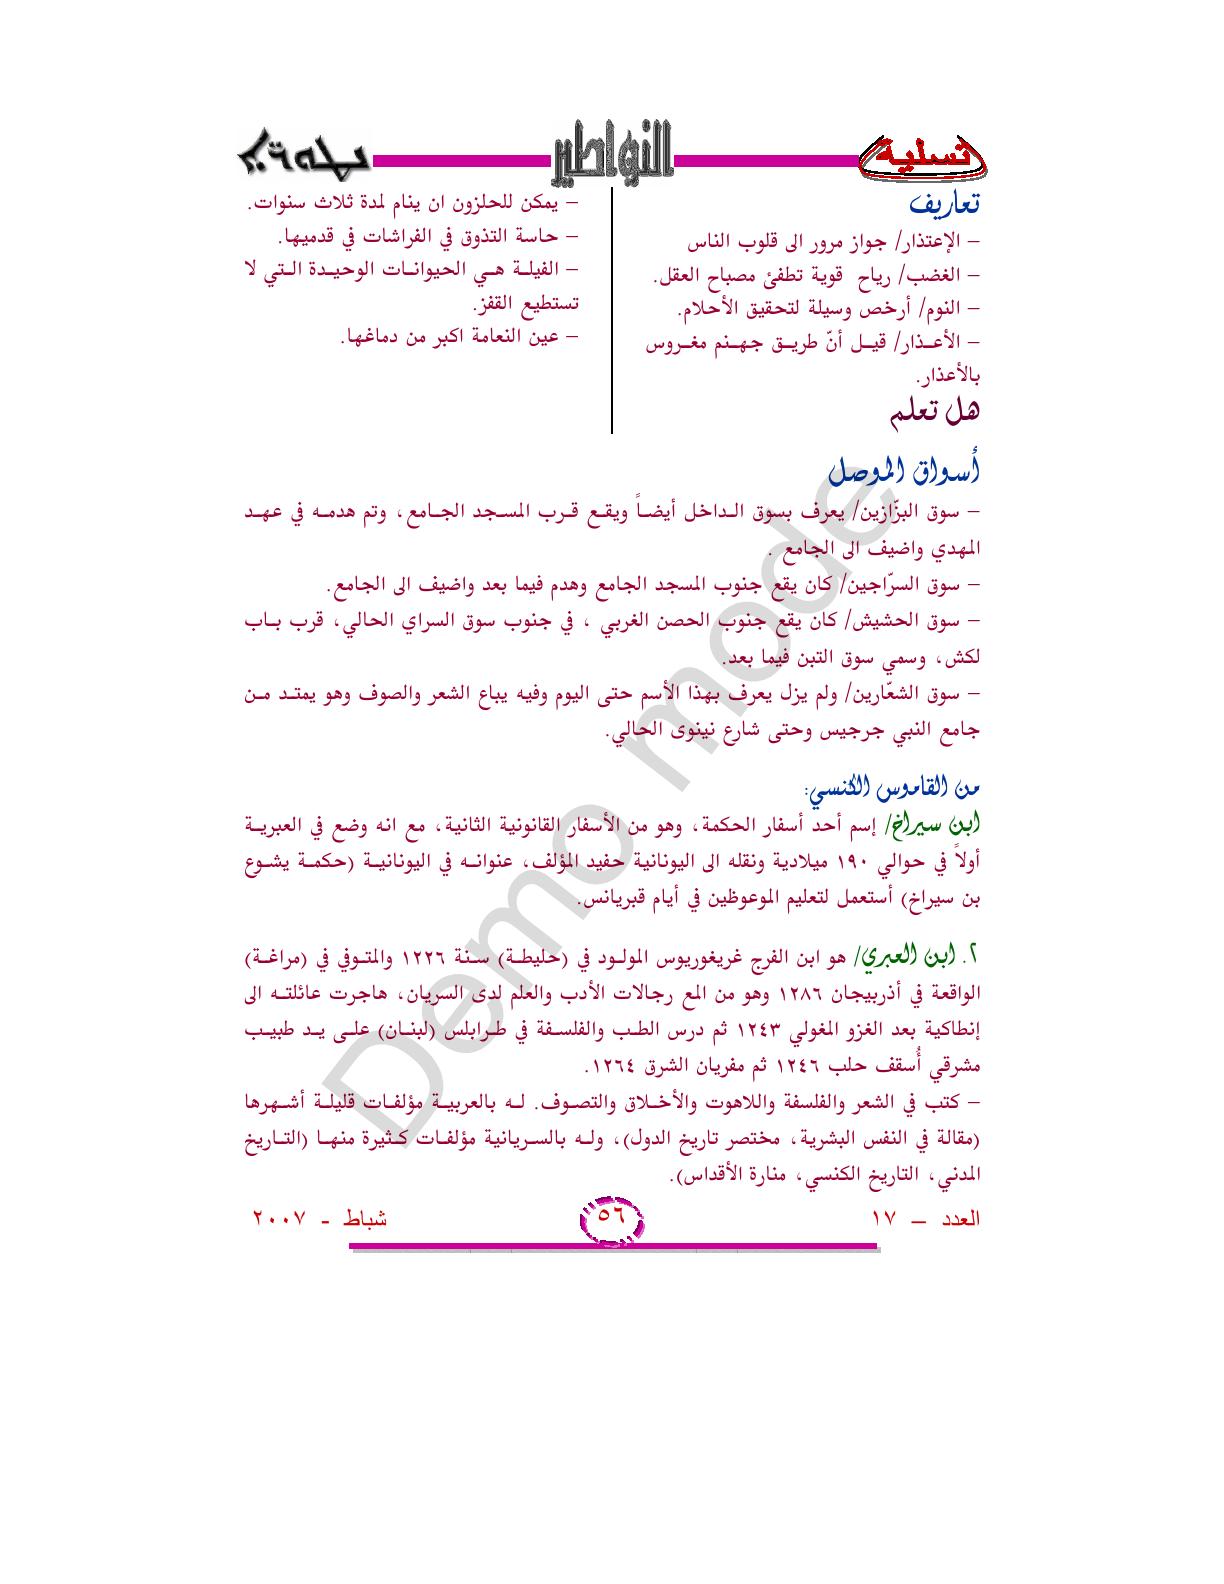 تسلية
النواطير
تعاريف
– الإعتذار/ جواز مرور الى قلوب الناس
– الغضب/ رياح قوية تطفئ مصباح العقل.
– النوم/ أرخص وسيلة لتحقيق الأحلام.
– الأعـــذار/ قيـــل أنّ طريـــق جهـــنم مغـــروس
بالأعذار.
هل تعلم
– يمكن للحلزون ان ينام لمدة ثلاث سنوات.
– حاسة التذوق في الفراشات في قدميها.
– الفيلـــة هـــي الحيوانـــات الوحيـــدة الـــتي لا
تستطيع القفز.
– عين النعامة اكبر من دماغها.
أسواق الموصل
– سوق البزّازين/ يعرف بسوق الـداخل أيضـاً ويقـع قـرب المسـجد الجـامع، وتم هدمـه في عهـد
المهدي واضيف الى الجامع .
– سوق السرّاجين/ كان يقع جنوب المسجد الجامع وهدم فيما بعد واضيف الى الجامع.
– سوق الحشيش/ كان يقع جنوب الحصن الغربي ، في جنوب سوق السراي الحالي، قرب بـاب
لكش، وسمي سوق التبن فيما بعد.
– سوق الشعّارين/ ولم يزل يعرف بهذا الأسم حتى اليوم وفيه يباع الشعر والصوف وهو يمتـد مـن
جامع النبي جرجيس وحتى شارع نينوى الحالي.
من القاموس الكنسي:
ابن سيراخ/ إسم أحد أسفار الحكمة، وهو من الأسفار القانونية الثانية، مع انه وضع في العبريـة
أولاً في حوالي ١٩٠ ميلادية ونقله الى اليونانية حفيد المؤلف، عنوانـه في اليونانيـة (حكمـة يشـوع
بن سيراخ) أستعمل لتعليم الموعوظين في أيام قبريانس.
٢. ابن العبري/ هو ابن الفرج غريغوريوس المولـود في (حليطـة) سـنة ١٢٢٦ والمتـوفي في (مراغـة)
الواقعة في أذربيجان ١٢٨٦ وهو من المع رجالات الأدب والعلم لدى السريان، هاجرت عائلتـه الى
إنطاكية بعد الغزو المغولي ١٢٤٣ ثم درس الطـب والفلسـفة في طـرابلس (لبنـان) علـى يـد طبيـب
مشرقي أُسقف حلب ١٢٤٦ ثم مفريان الشرق ١٢٦٤.
– كتب في الشعر والفلسفة واللاهوت والأخـلاق والتصـوف. لـه بالعربيـة مؤلفـات قليلـة أشـهرها
(مقالة في النفس البشرية، مختصر تاريخ الدول)، ولـه بالسـريانية مؤلفـات كـثيرة منهـا (التـاريخ
المدني، التاريخ الكنسي، منارة الأقداس).
العدد – ١٧
٥٦
شباط - ٢٠٠٧
Demo mode